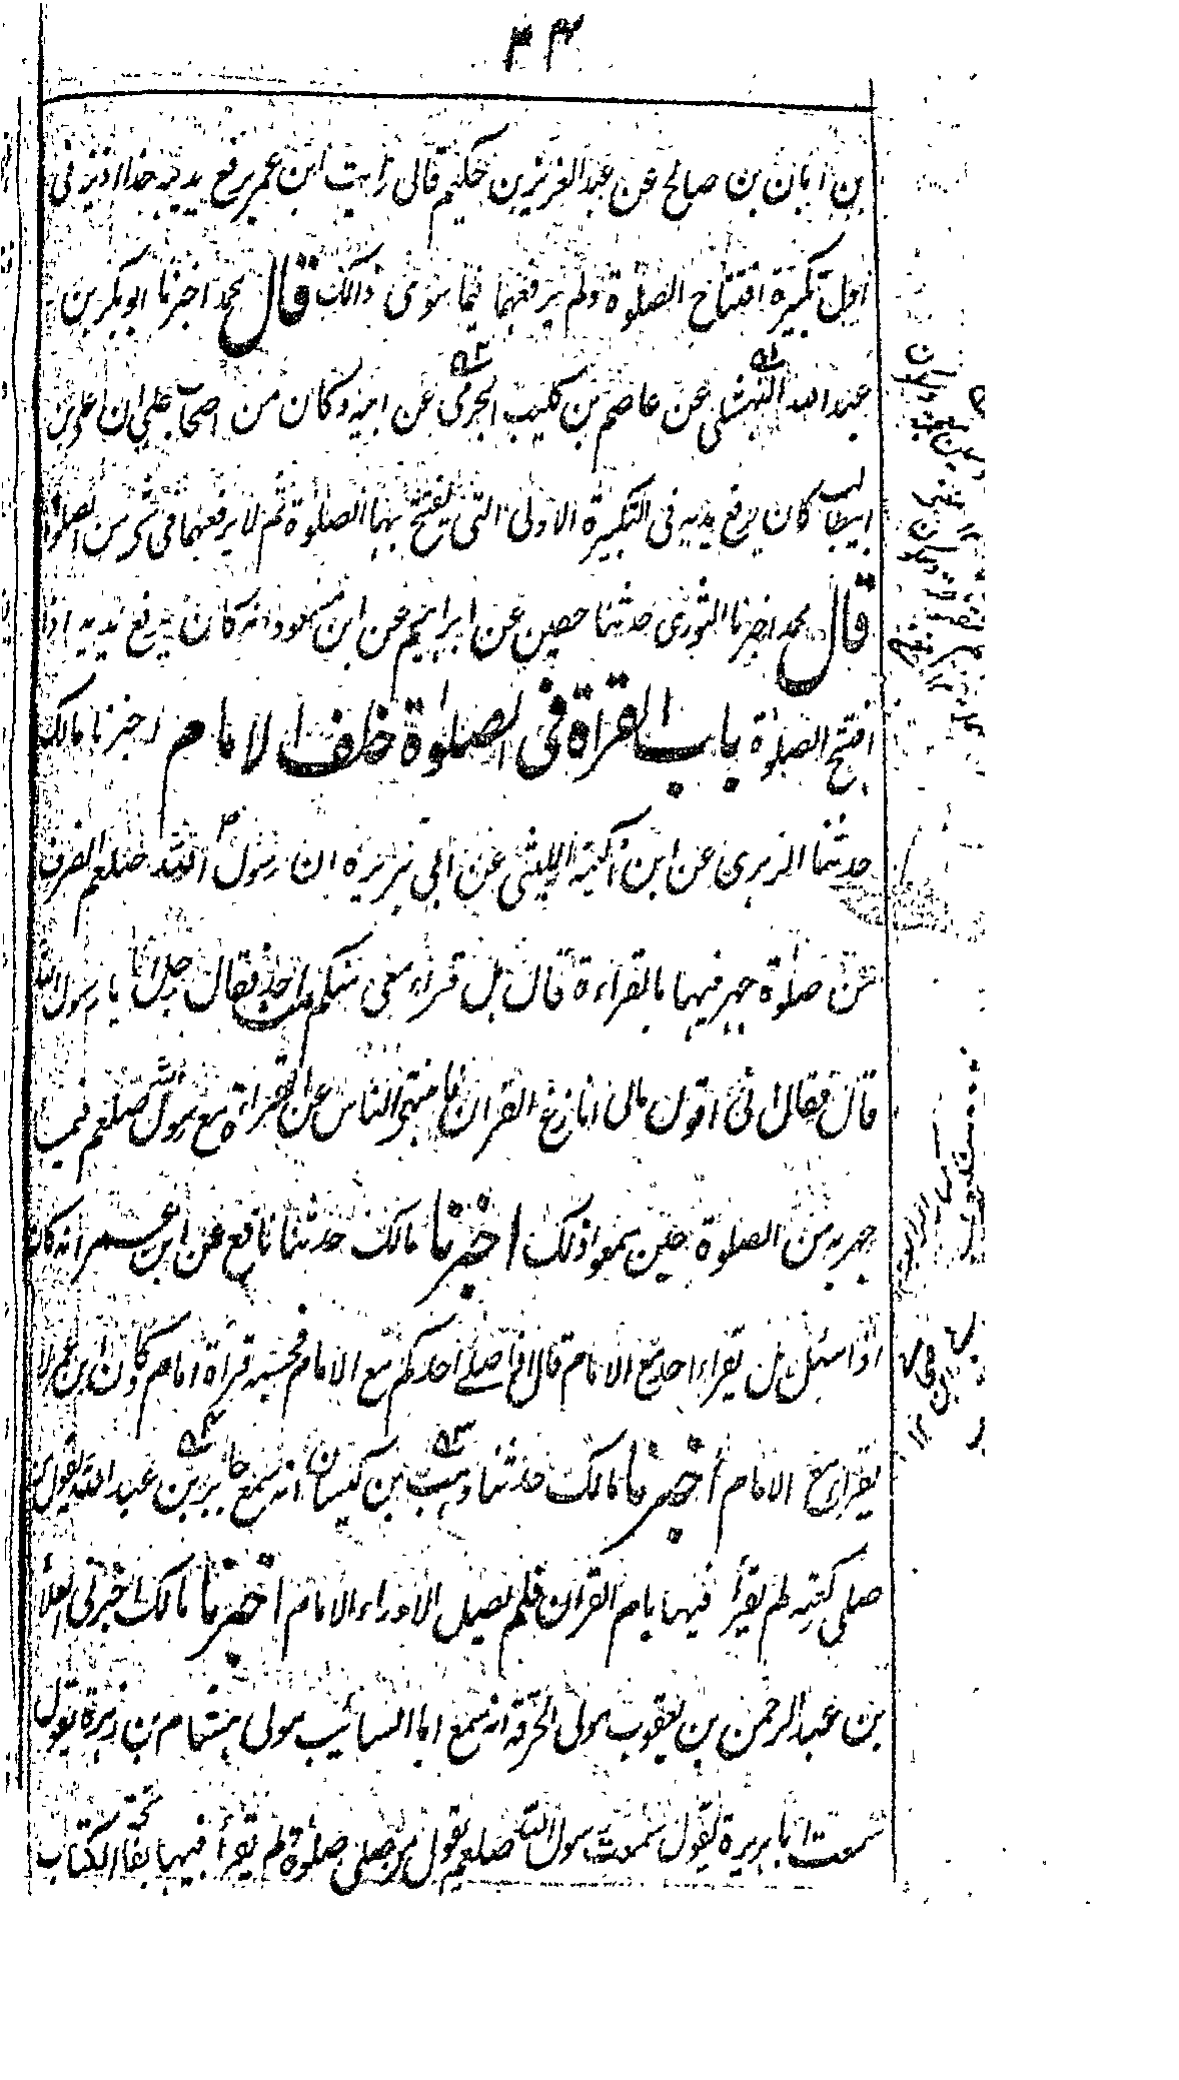 ۴۴
بن ابان بن صالح عن عبد العزيز بن حكيم قال رايت ابن عمر يرفع يديه حذا اذنيه فى
اول تكبيرة افتتاح الصلوة ولم يرفعهما فيما سوى ذالك قال محمد اخبرنا ابو بكر بن
عبد الله النهشلى عن عاصم بن كليب الجرمى عن ابيه وكان من اصحاب على ان على بن
ابيطالب كان يرفع يديه فى التكبيرة الاولى التى يفتتح بها الصلوة ثم لا يرفعهما فى شئ من الصلوة
قال محمد اخبرنا الثورى حدثنا حصين عن ابراهيم عن ابن مسعود انه كان يرفع يديه اذا
افتتح الصلوة باب القراة فى الصلوة خلف الامام اخبرنا مالك
حدثنا الزهرى عن ابن اكيمة الليثى عن ابى هريرة ان رسول الله صلعم انصرف
من صلوة جهر فيها بالقراءة قال هل قراء معى منكم من احد فقال رجل انا يا رسول الله
قال فقال انى اقول مالى انازع القران فانتهى الناس عن القراءة مع رسول الله صلعم فيما
جهر به من الصلوة حين سمعوا ذلك اخبرنا مالك حدثنا نافع عن ابن عمر انه كان
اذا سئل هل يقراء احد مع الامام قال اذا صلے احدكم مع الامام فحسبه قراة امام وكان ابن عمر لا
يقراء مع الامام اخبرنا مالك حدثنا وهب بن كيسان انه سمع جابر بن عبد الله يقول من
صلى ركعة لم يقرأ فيها بام القران فلم يصل الا وراء الامام اخبرنا مالك اخبرنى العلاء
بن عبد الرحمن بن يعقوب مولى الحرقة انه سمع ابا السائب مولى هشام بن زهرة يقول
سمعت ابا هريرة يقول سمعت رسول الله صلعم يقول من صلى صلوة لم يقرأ فيها بفاتحة الكتاب